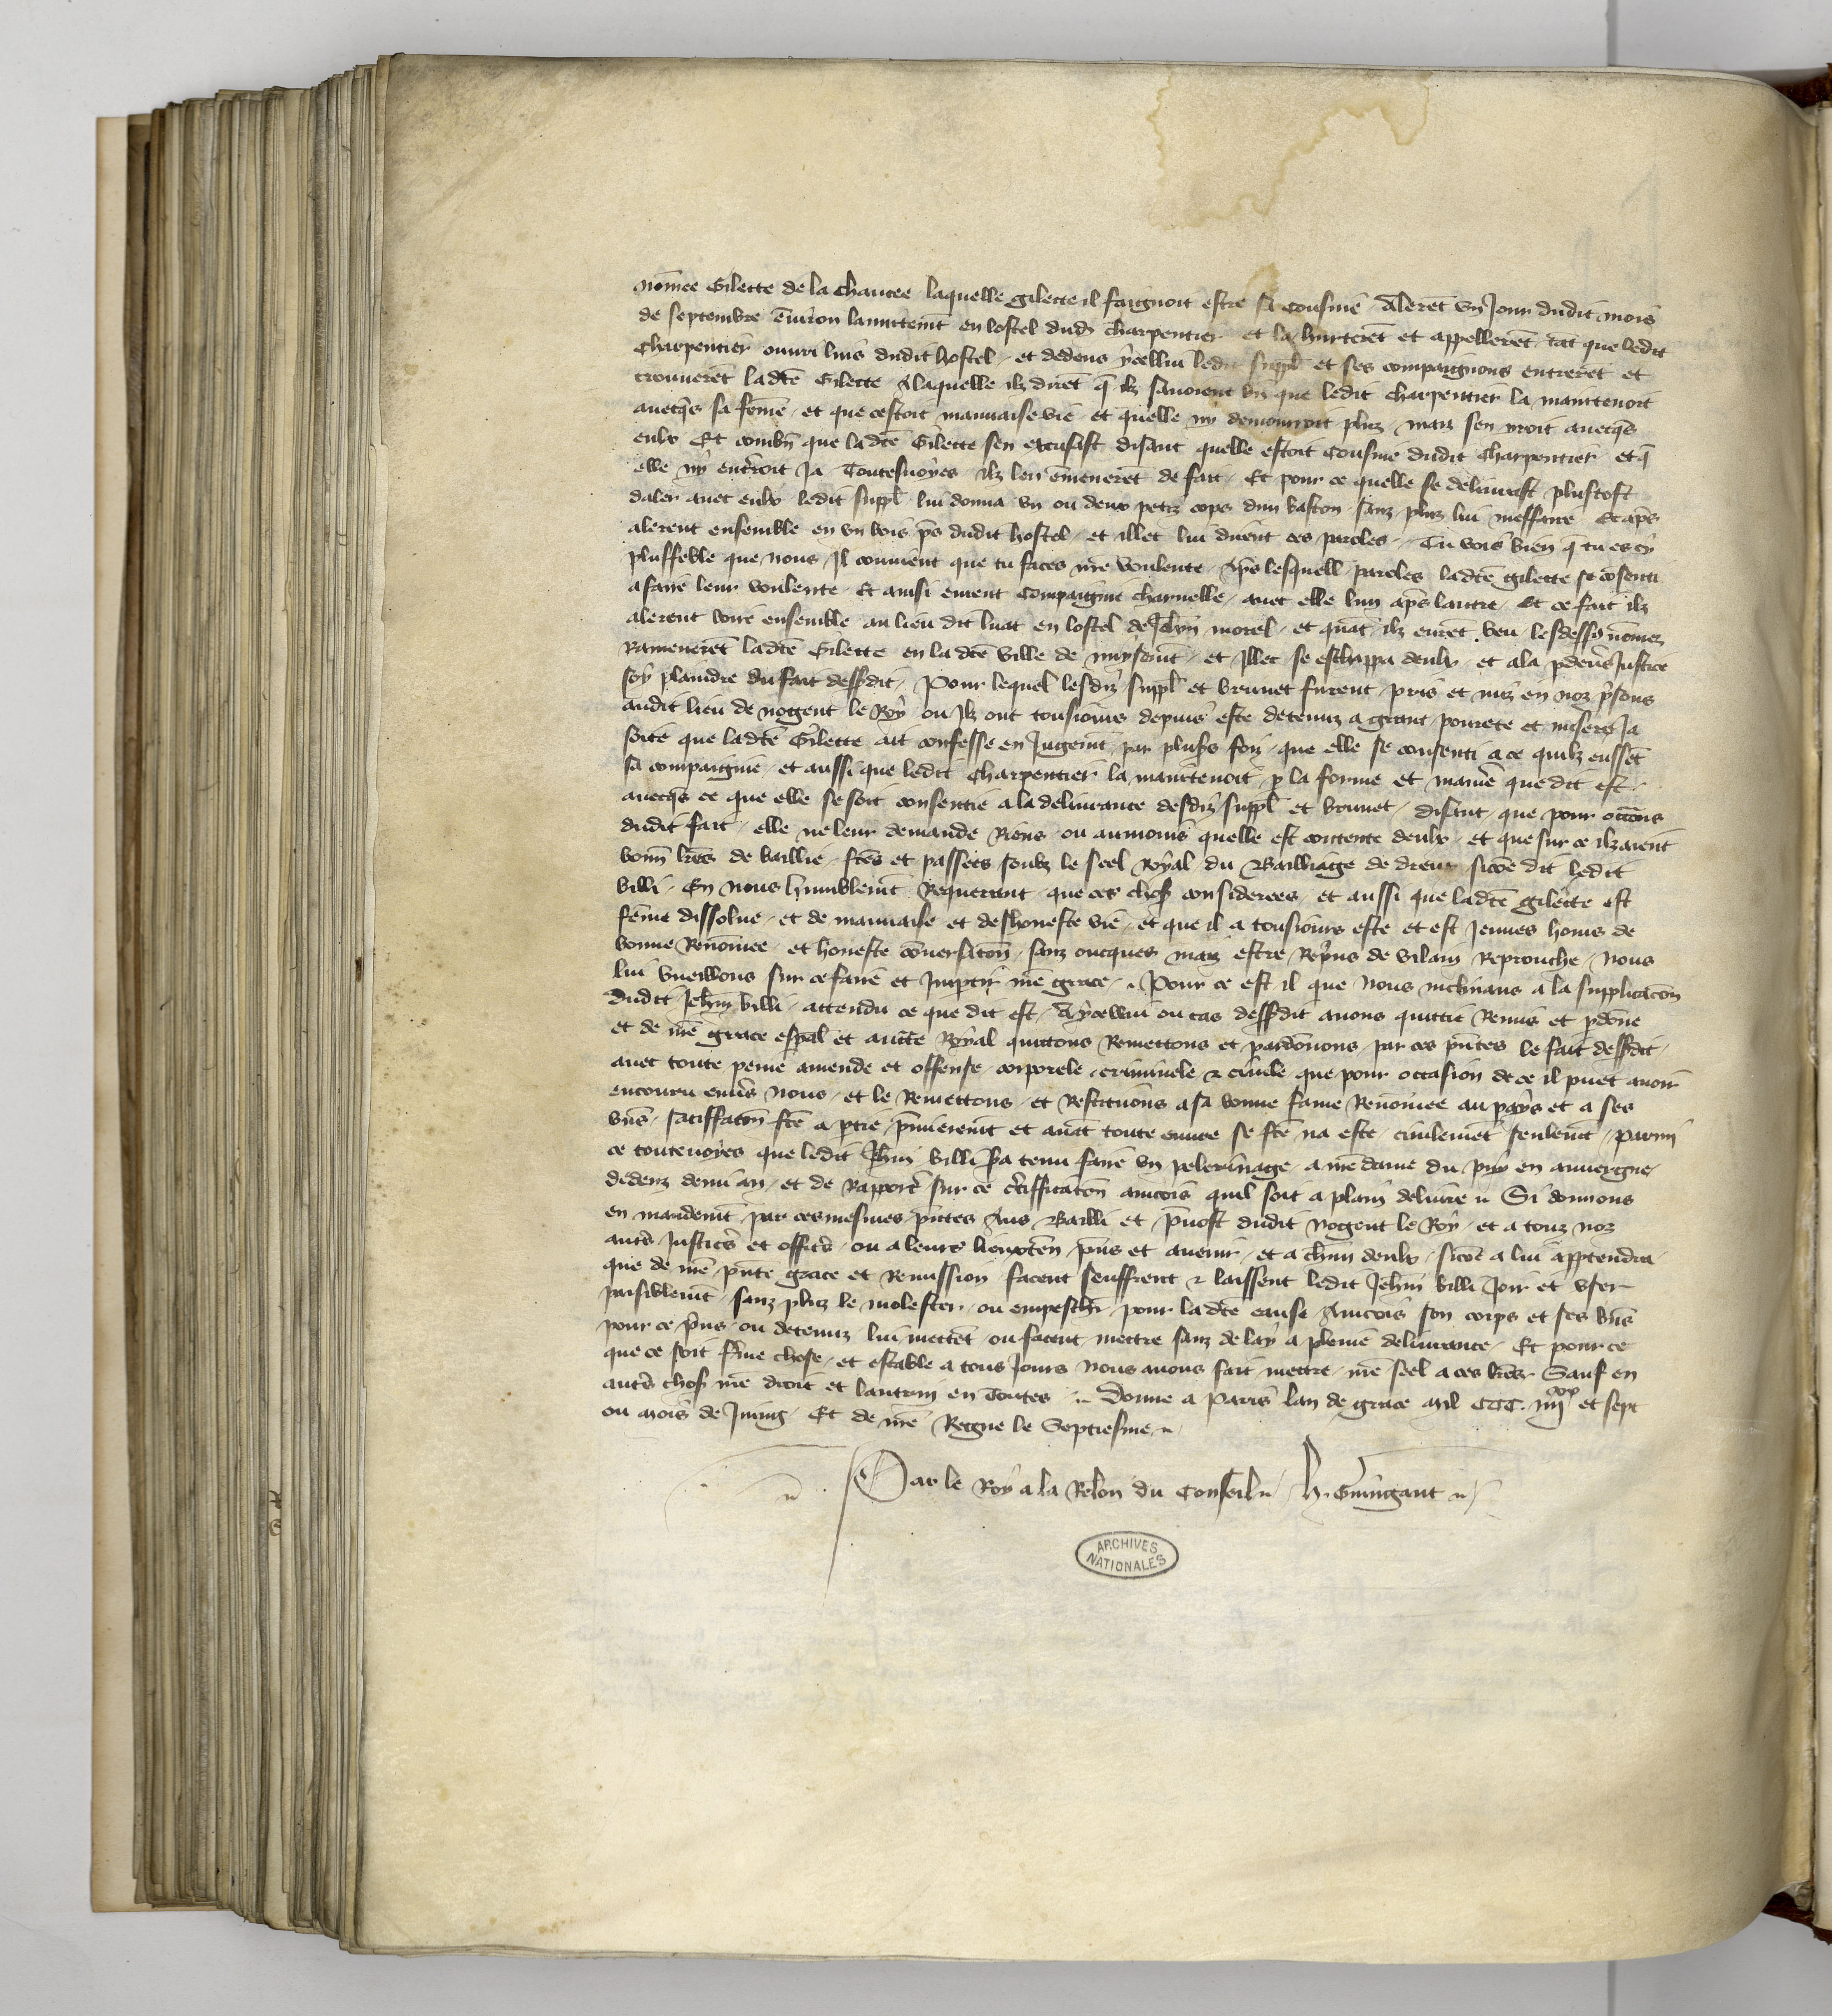 nōmee Gilette de la Chaucee laquelle gilette il faignoit estre sa Cousine Alerēt un Jour dudit mois
de septembre ēuiron lanuitemt en lostel dudi charpentier et la hurterēt et appellerēt tāt que ledit
Charpentier ouuri luis dudit hostel et dedens ycellui ledit suppl et ses compaignons entrerēt et
trouuerēt ladcē Gilette A laquelle ilz dirēt q̄ ilz sauoient bn̄ que ledit charpentier la maintenoit
auecq̄s sa fēme et que cestoit mauuaise vie et quelle ny demourroit plus mais sen iroit auecq̄s
eulx Et combn̄ que ladcē Gilette sen excusast disant quelle estoit Cousine dudit Charpentier et q̄
elle ny entroit Ja Toutesuoyes ilz len ēmenerēt de fait Et pour ce quelle se deliurast plustost
daler auec eulx ledit suppl lui donna un ou deux petiz cops dun baston sanz plus lui meffaire Et ap̄s
alerent ensemble en un bois p̄s dudit hostel et illec lui dirent ces paroles Tu vois bien q̄ tu es cy
plus feble que nous Il conuient que tu faces nr̄e voulente Ap̄s lesquell paroles ladcē gilette se cōsenti
a faire leur voulente Et ainsi eurent Compaignie charnelle auec elle lun ap̄s lautre Et ce fait ilz
alerent boire ensemble au lieu dit luat en lostel de Jehan morel et quāt ilz eurēt beu lesdessus nōmez
Ramenerēt ladcē Gilette en ladcē ville de et Illec se eschappa deulx et ala p deūs Justice
soy plaindre du fait dessdit Pour lequel lesdiz suppl et brunet furent pris et mis en noz p̄sons
audit lieu de nogent le Roy ou Ilz ont tousiours depuis este detenuz a grant pourete et misere Ja
soite que ladcē Gilette ait confesse en Jugemt par plus̄s foiz que elle se consenti a ce quilz eussēt
sa compaignie et aussi que ledit Charpentier la maintenoit p la forme et maniē que dit est
auecq̄s ce que elle se soit consentie a la deliurance desdiz suppl et brunet disant que pour occōns
dudit fait elle ne leur demande Riens ou aumoins quelle est contente deulx et que sur ce ilz aient
bonn lr̄es de baillie fcēs et passees soubz le seel Royal du Bailliage de dreux sicōe dit ledit
billi En nous humblemt Requerant que ces chos considerees et aussi que ladcē gilette est
fēme dissolue et de mauuaise et deshoneste vie et que il a tousiours este et est Jeunes homs de
bonne Renōmee et honeste cōuersatōn sanz oncques mais estre Repris de vilain Reprouche Nous
lui vueillons sur ce faire et Impartir nr̄e grace Pour ce est il que Nous inclinans a la supplicacōn
dudit Jehan billi attendu ce que dit est A ycellui ou cas dessdit auons quittie Remis et pdōne
et de nr̄e grace esp̄al et aucte Royal quittons Remettons et pardōnons par ces pn̄tes le fait dessdit
auec toute peine amende et offense corporele criminele & ciuile que pour occasion de ce il puet auoir
encouru enuers Nous et le Remettons et Restituons a sa bonne fame Renōmee au pays et a ses
bn̄s satiffacōn fcē a ptie p̄mieremt et auāt toute euure se fcē na este ciuilemēt seulemt Parmi
ce toutevoyes que ledit Jehan billi sa tenu faire un pelerinage a nr̄e dame du puy en auuergne
dedenz demi an et de Rapporter sur ce c̄tifficatōn aincois quil soit a plain deliure Si donnons
en mandemt par ces mesmes pn̄tes Aus Bailli et p̄uost dudit Nogent le Roy et a touz noz
autrs Justicrs et officrs ou a leurs lieuxten p̄ns et auenir et a chūn deulx sicōe a lui apptendra
que de nr̄e pn̄te grace et Remission facent seuffrent & laissent ledit Jehan billi Joir et user
paisiblemt sanz plus le molester ou empeschr pour ladcē cause Aincois son corps et ses bn̄s
pour ce p̄ns ou detenuz lui mettēt ou facent mettre sanz delay a pleine deliurance Et pour ce
que ce soit fme chose et estable a tous Jours nous auons fait mettre nr̄e seel a ces lr̄es Sauf en
autrs chos nr̄e droit et lautrui en Toutes Donne a Paris lan de grace mil CCC. iiijxx et sept
ou mois de Juing Et de nr̄e Regne le Septiesme
Par le Roy a la Relōn du Conseil H. Guingant
ARCHIVES NATIONALES